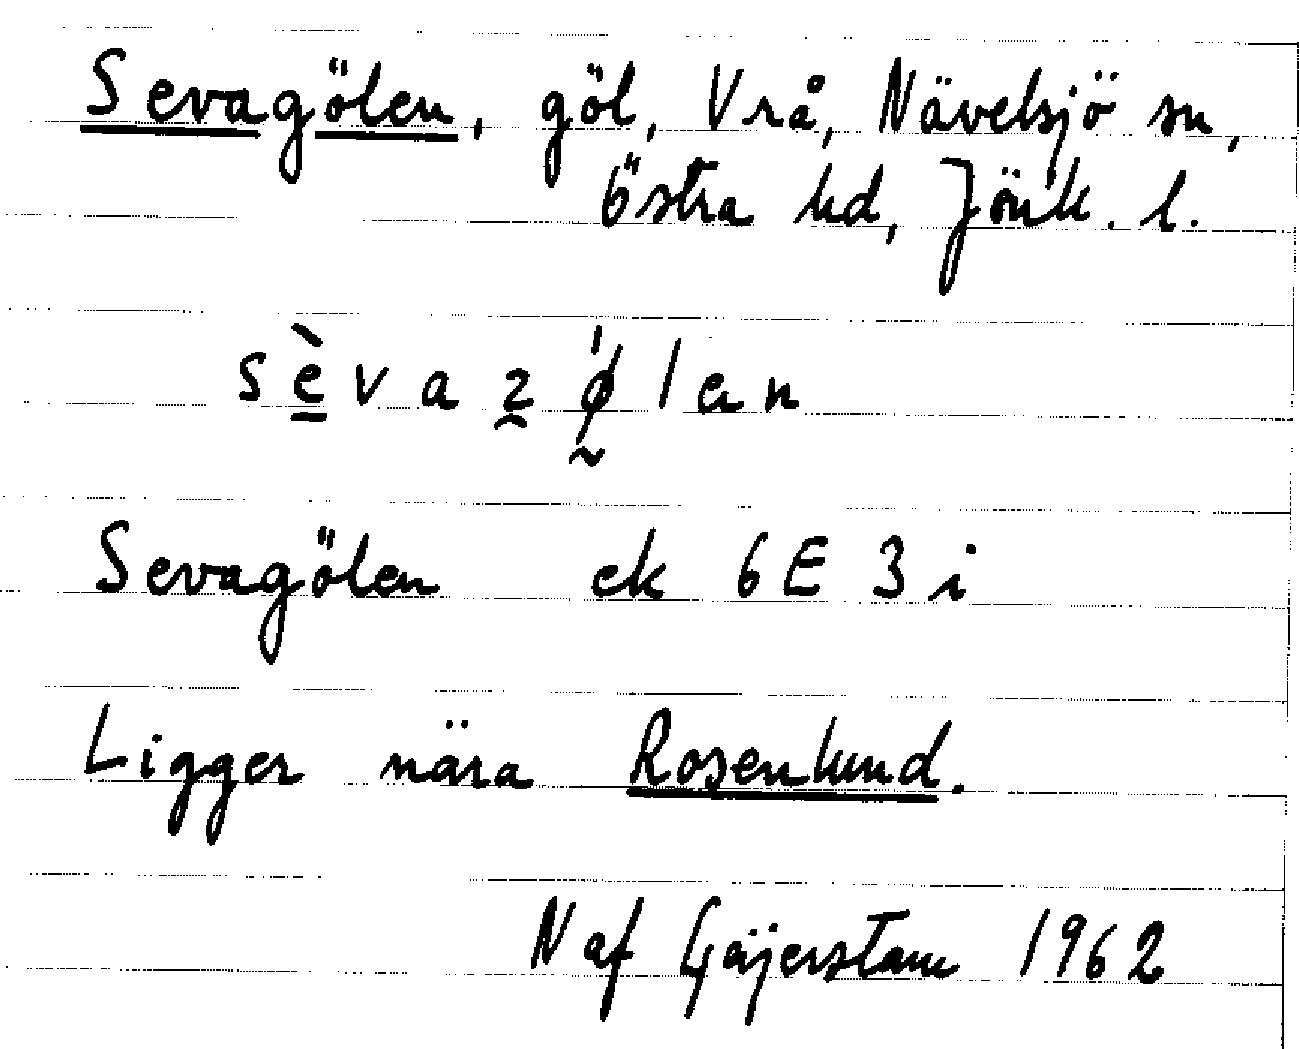 Sevagölen, göl, Vrå, Nävelsjö sn,
Östra hd, Jönk. l.
sèvaʒǿlən
Sevagölen ek 6E 3i
Ligger nära Rosenlund.
N af Gäijerstam 1962